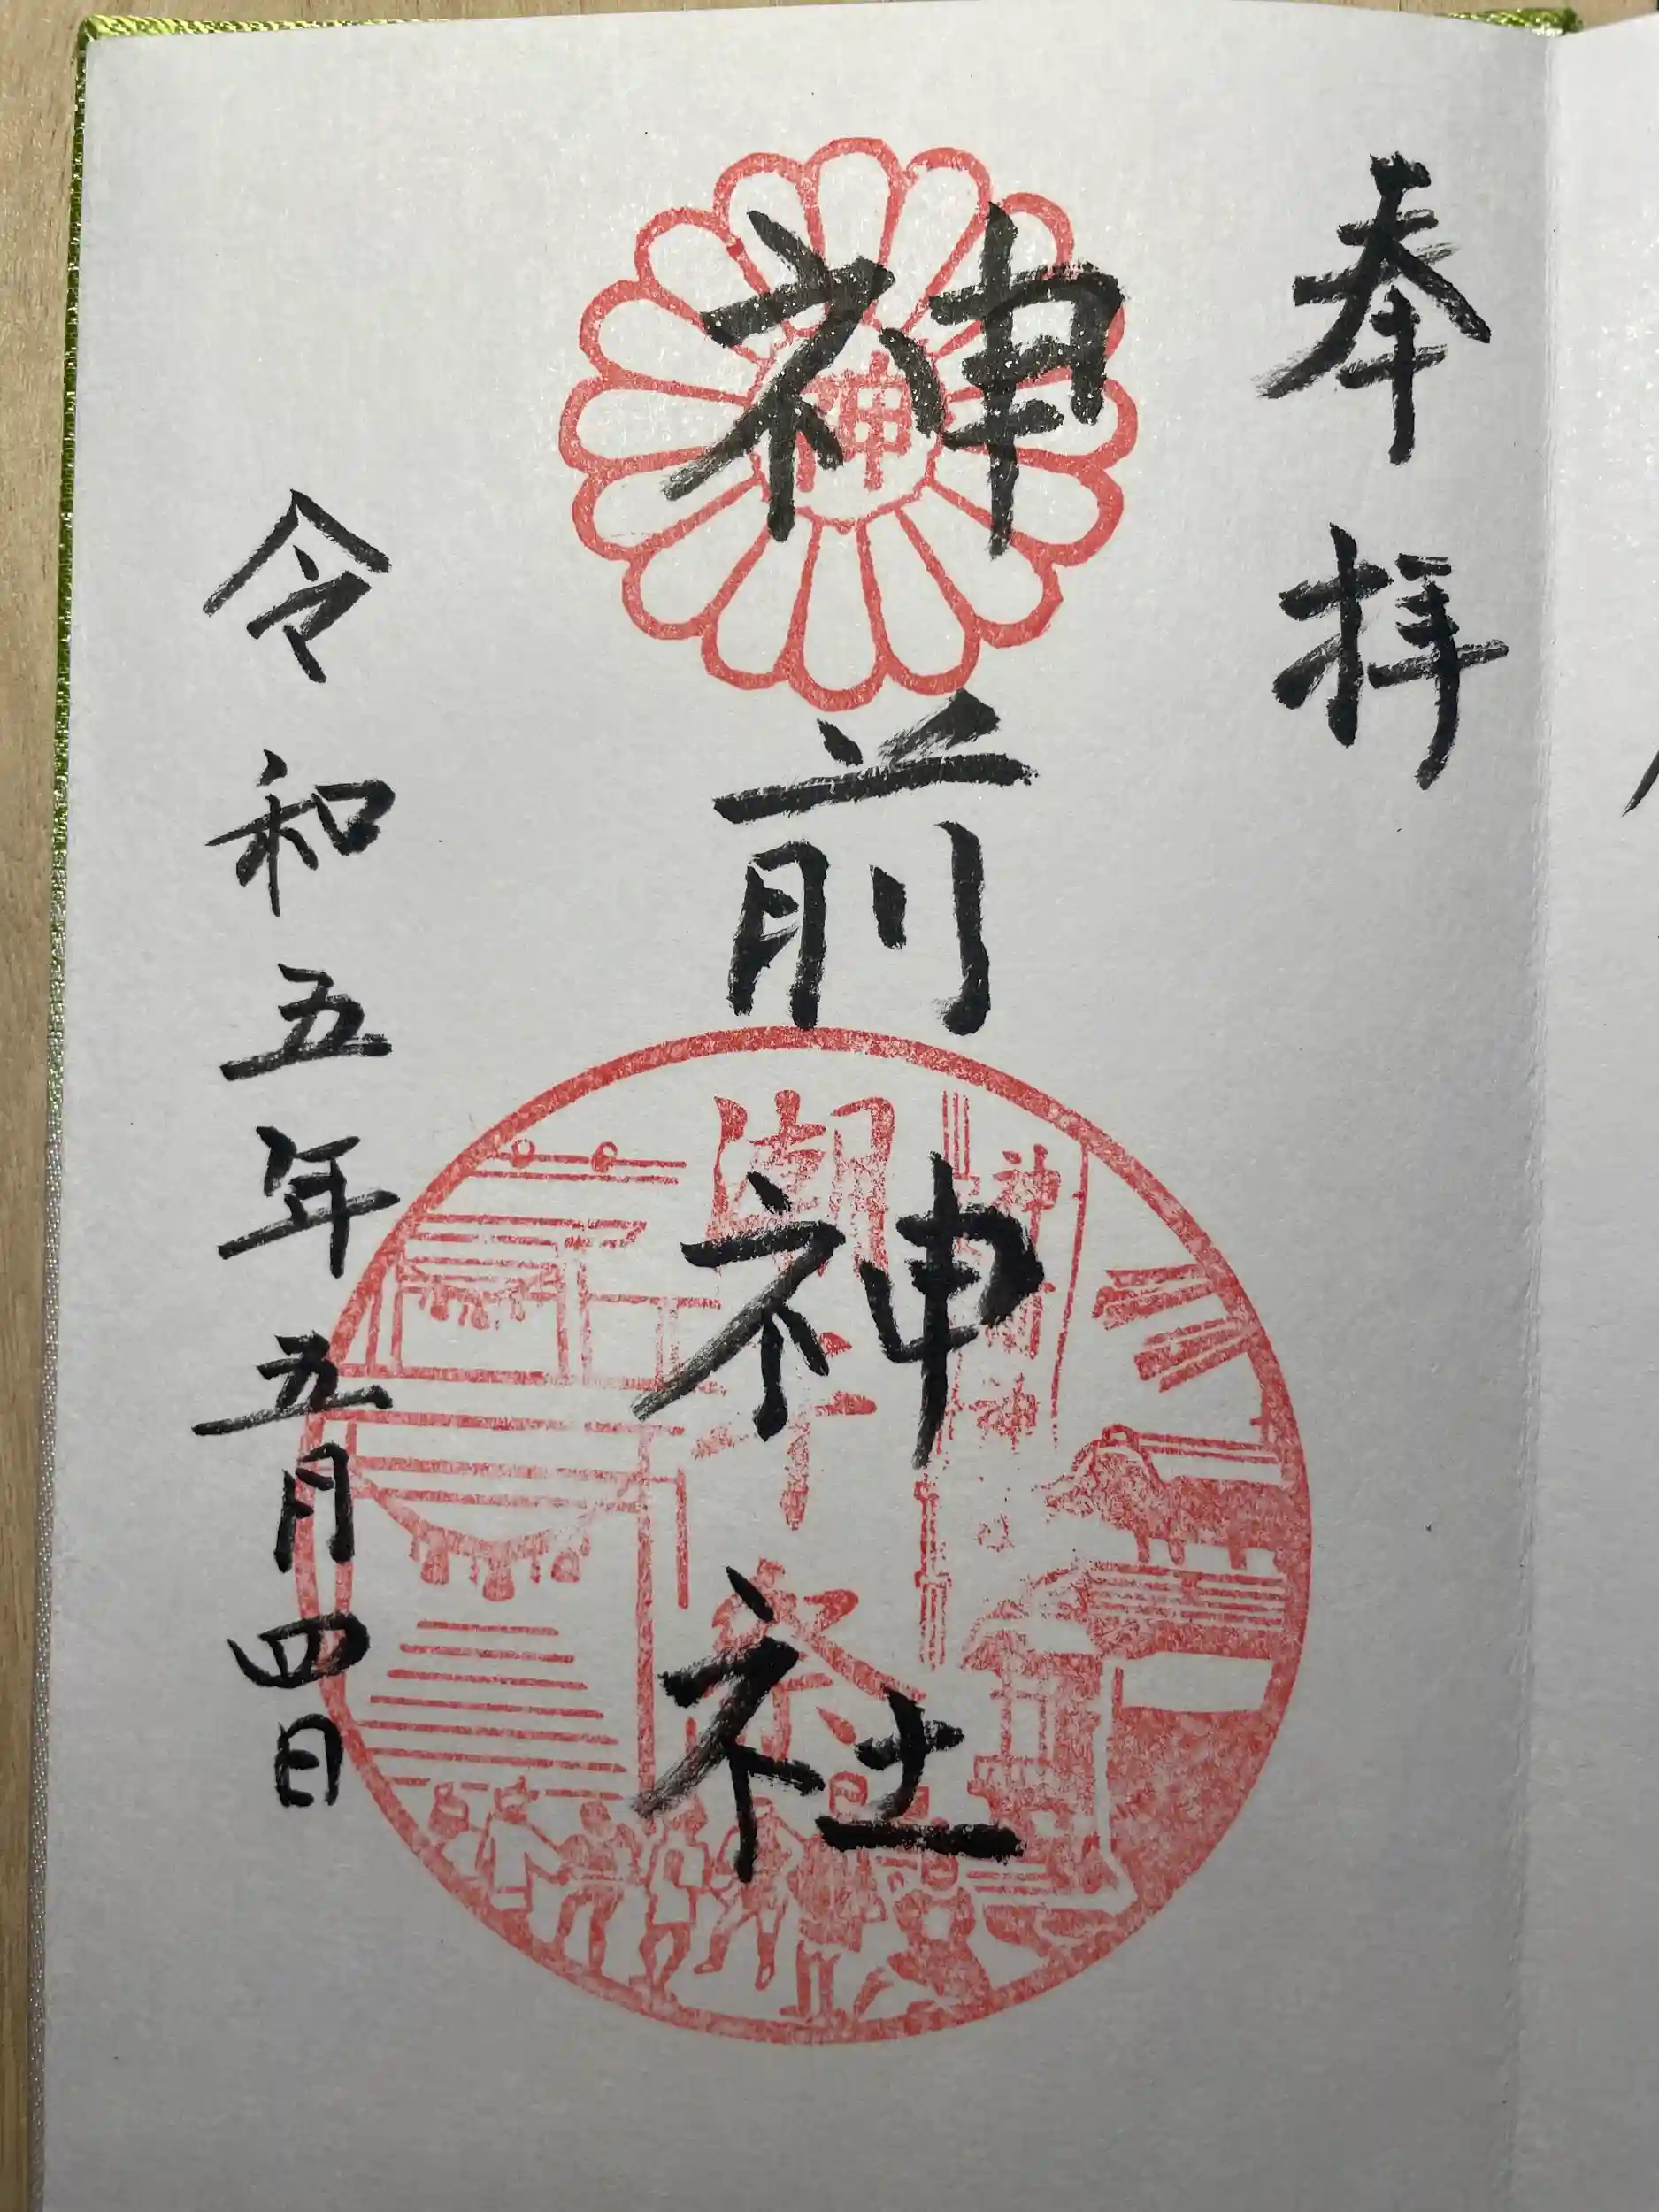 奉拝
神前神社
潮干祭
神
神
令和五年五月四日